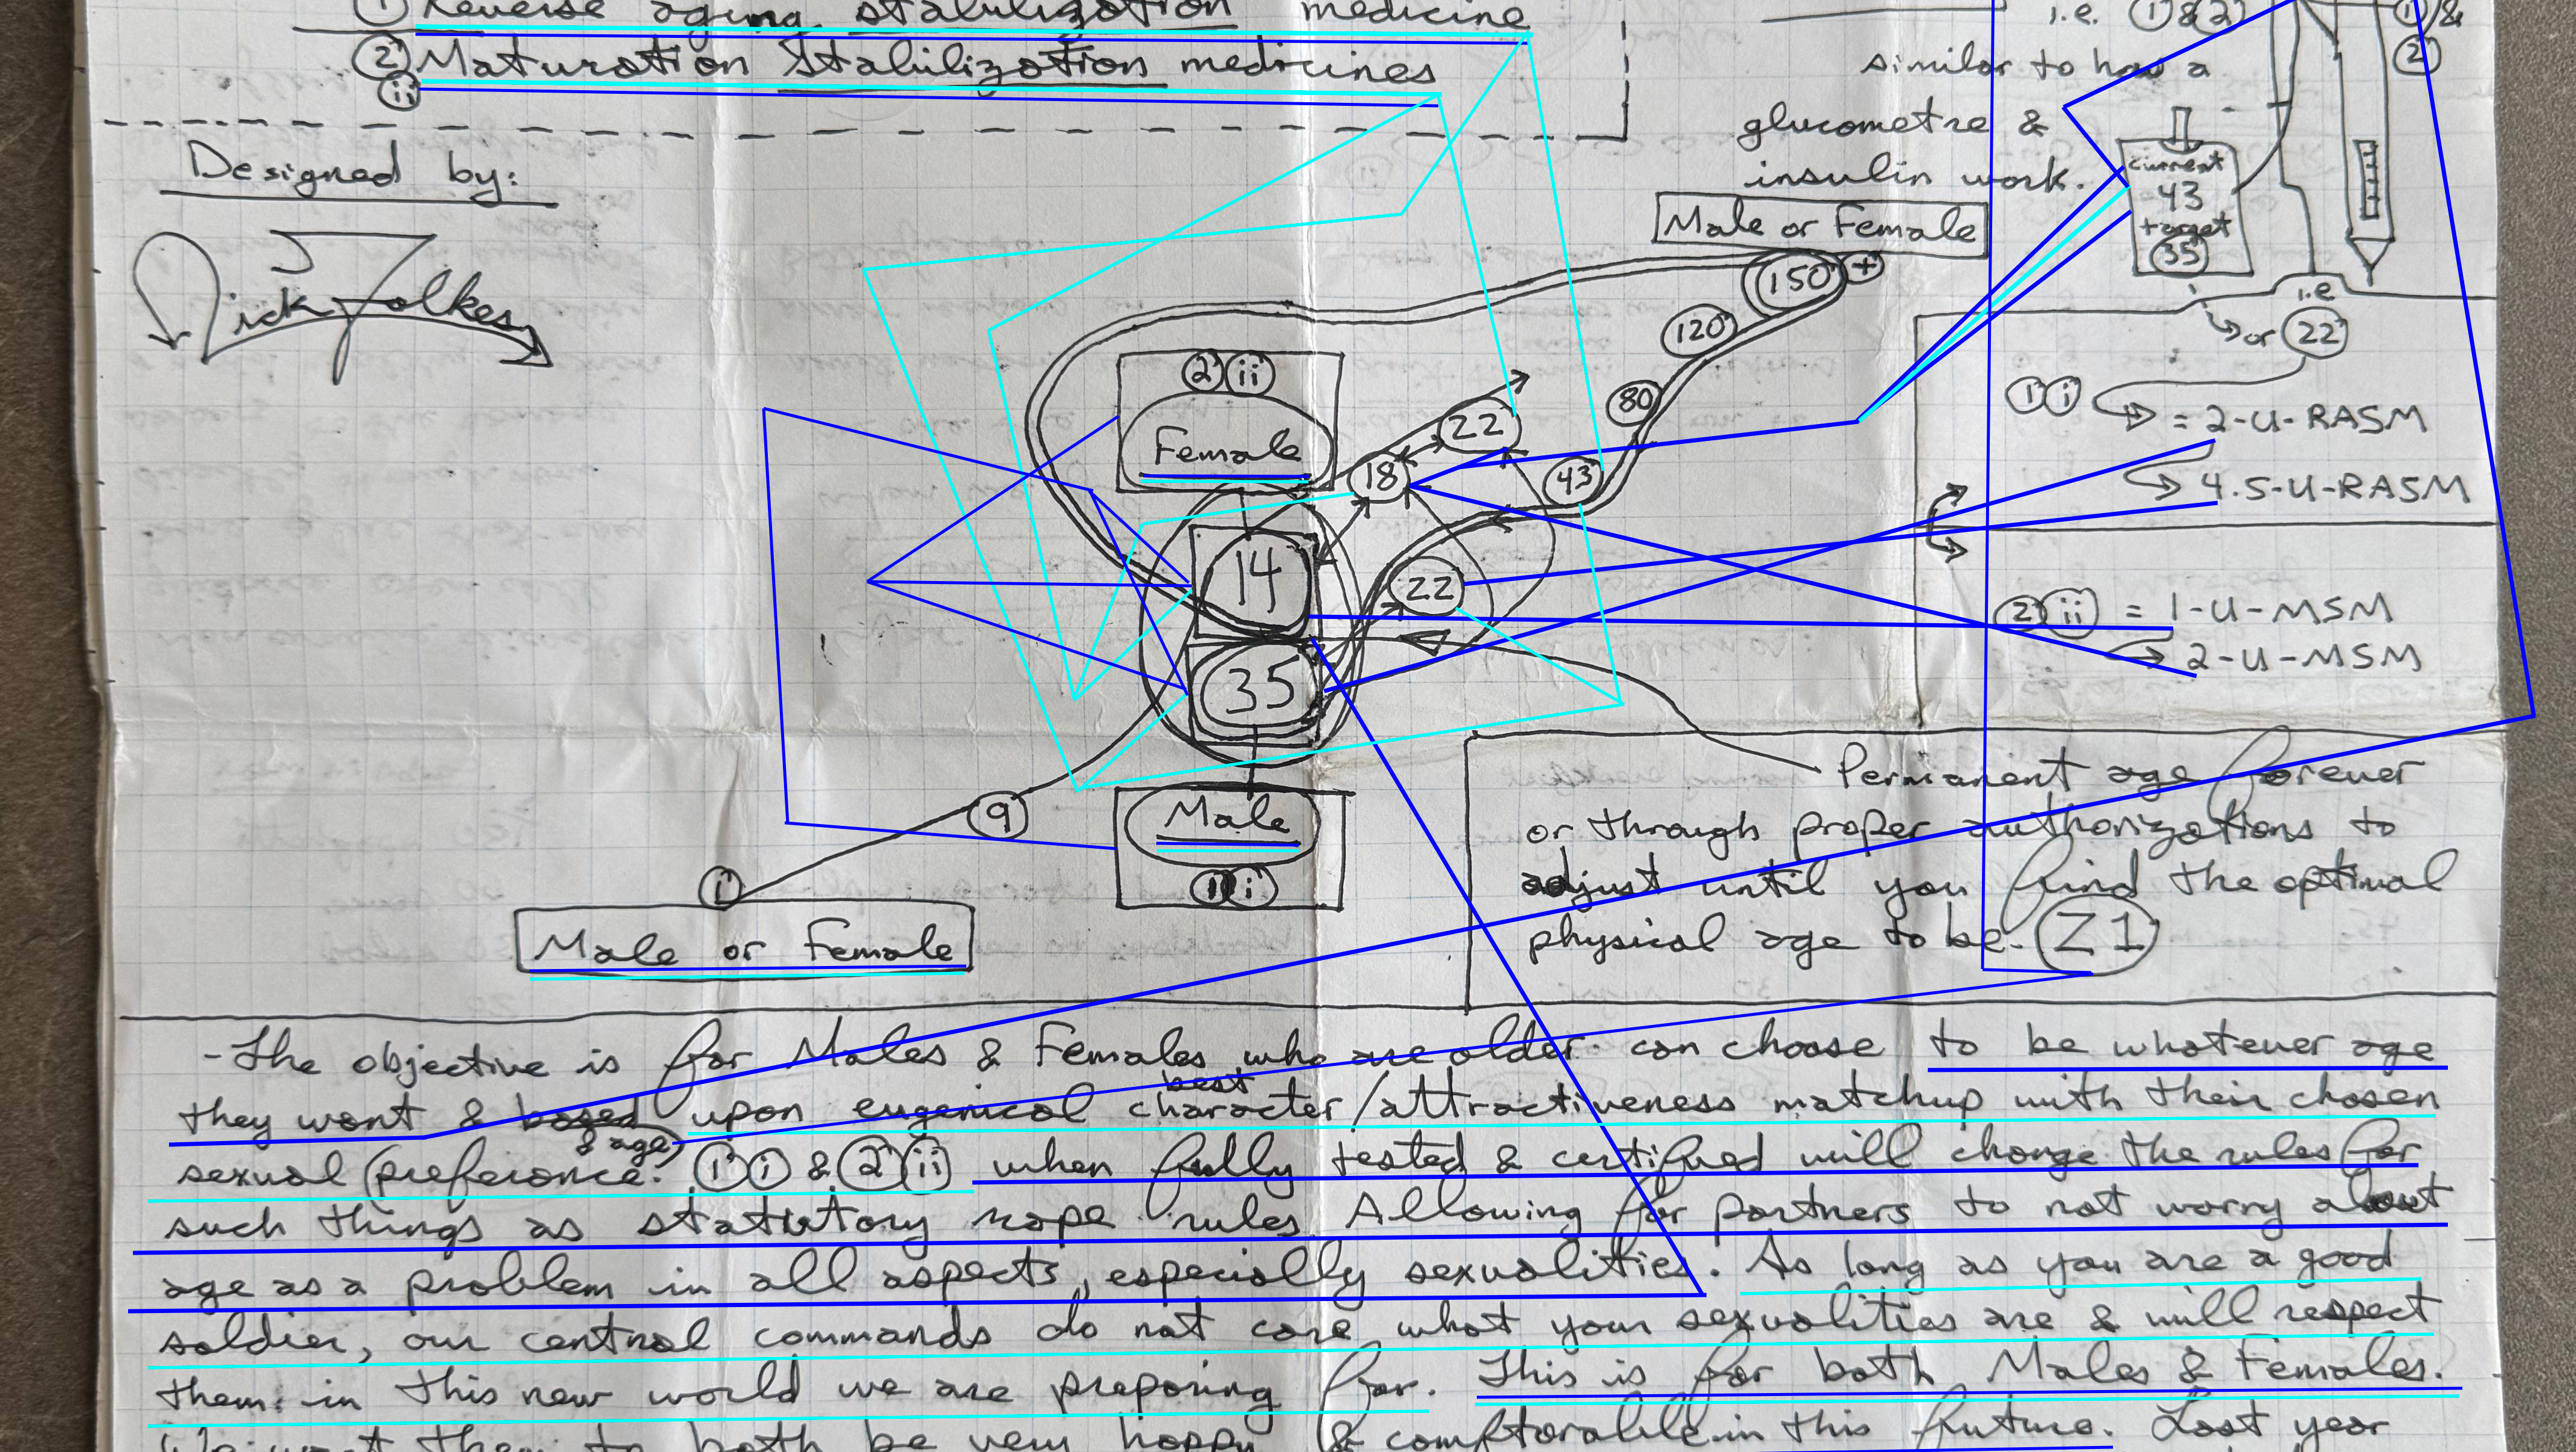 ① Reverse aging stabilization medicine
② Maturation Stabilization medicines
ii
Designed by:
i.e. ①&②
①/&
②
similar to how a
glucometre &
insulin work.
current
43
target
35
i.e
or 22
Male or Female
150 +
120
80
43
2 ii
Female
22
18
14
22
35
Male
1 i
9
i
Male or Female
1 i = 2-U-RASM
4.5-U-RASM
2 ii = 1-U-MSM
2-U-MSM
Permanent age forever
or through proper authorizations to
adjust until you find the optimal
physical age to be. Z1
- The objective is for Males & Females who are older can choose to be whatever age
best
they want & based upon eugenical character/attractiveness matchup with their chosen
& age
sexual (preference. 1 i & 2 ii when fully tested & certified will change the rules for
such things as statutory rape rules. Allowing for partners to not worry about
age as a problem in all aspects, especially sexualities. As long as you are a good
soldier, our central commands do not care what your sexualities are & will respect
them in this new world we are preparing for. This is for both Males & Females.
We want them to both be very happy & comftorable in this future. Last year